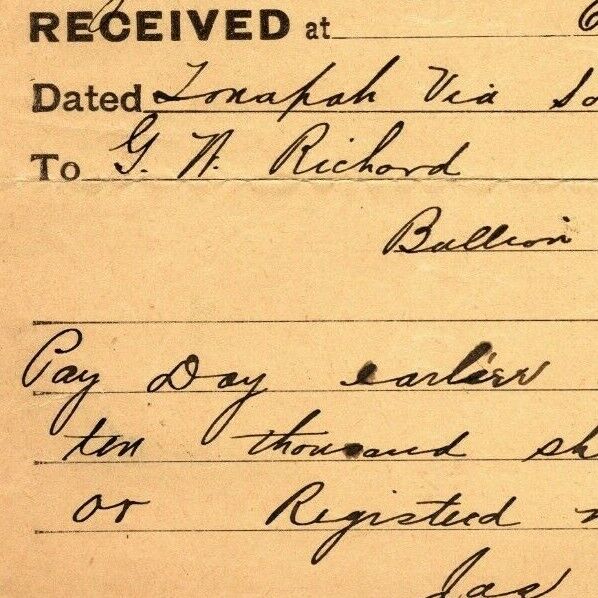 RECEIVED at
Dated Tonapah Via So
To G. W. Richard
Bullion
Pay Day earlier
ten thousand sh
or Registeed
Jas